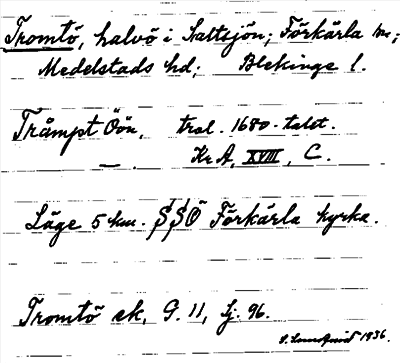 Tromtö, halvö i Saltsjön; Förkärla sn;
Medelstads hd; Blekinge l.
Tråmpt Öön, trol. 1680-talet.
Kr A, XVIII, C.
Läge 5 km. SSÖ Förkärla kyrka.
Tromtö ek, G. 11, Lj. 96.
S. Lundquist 1936.